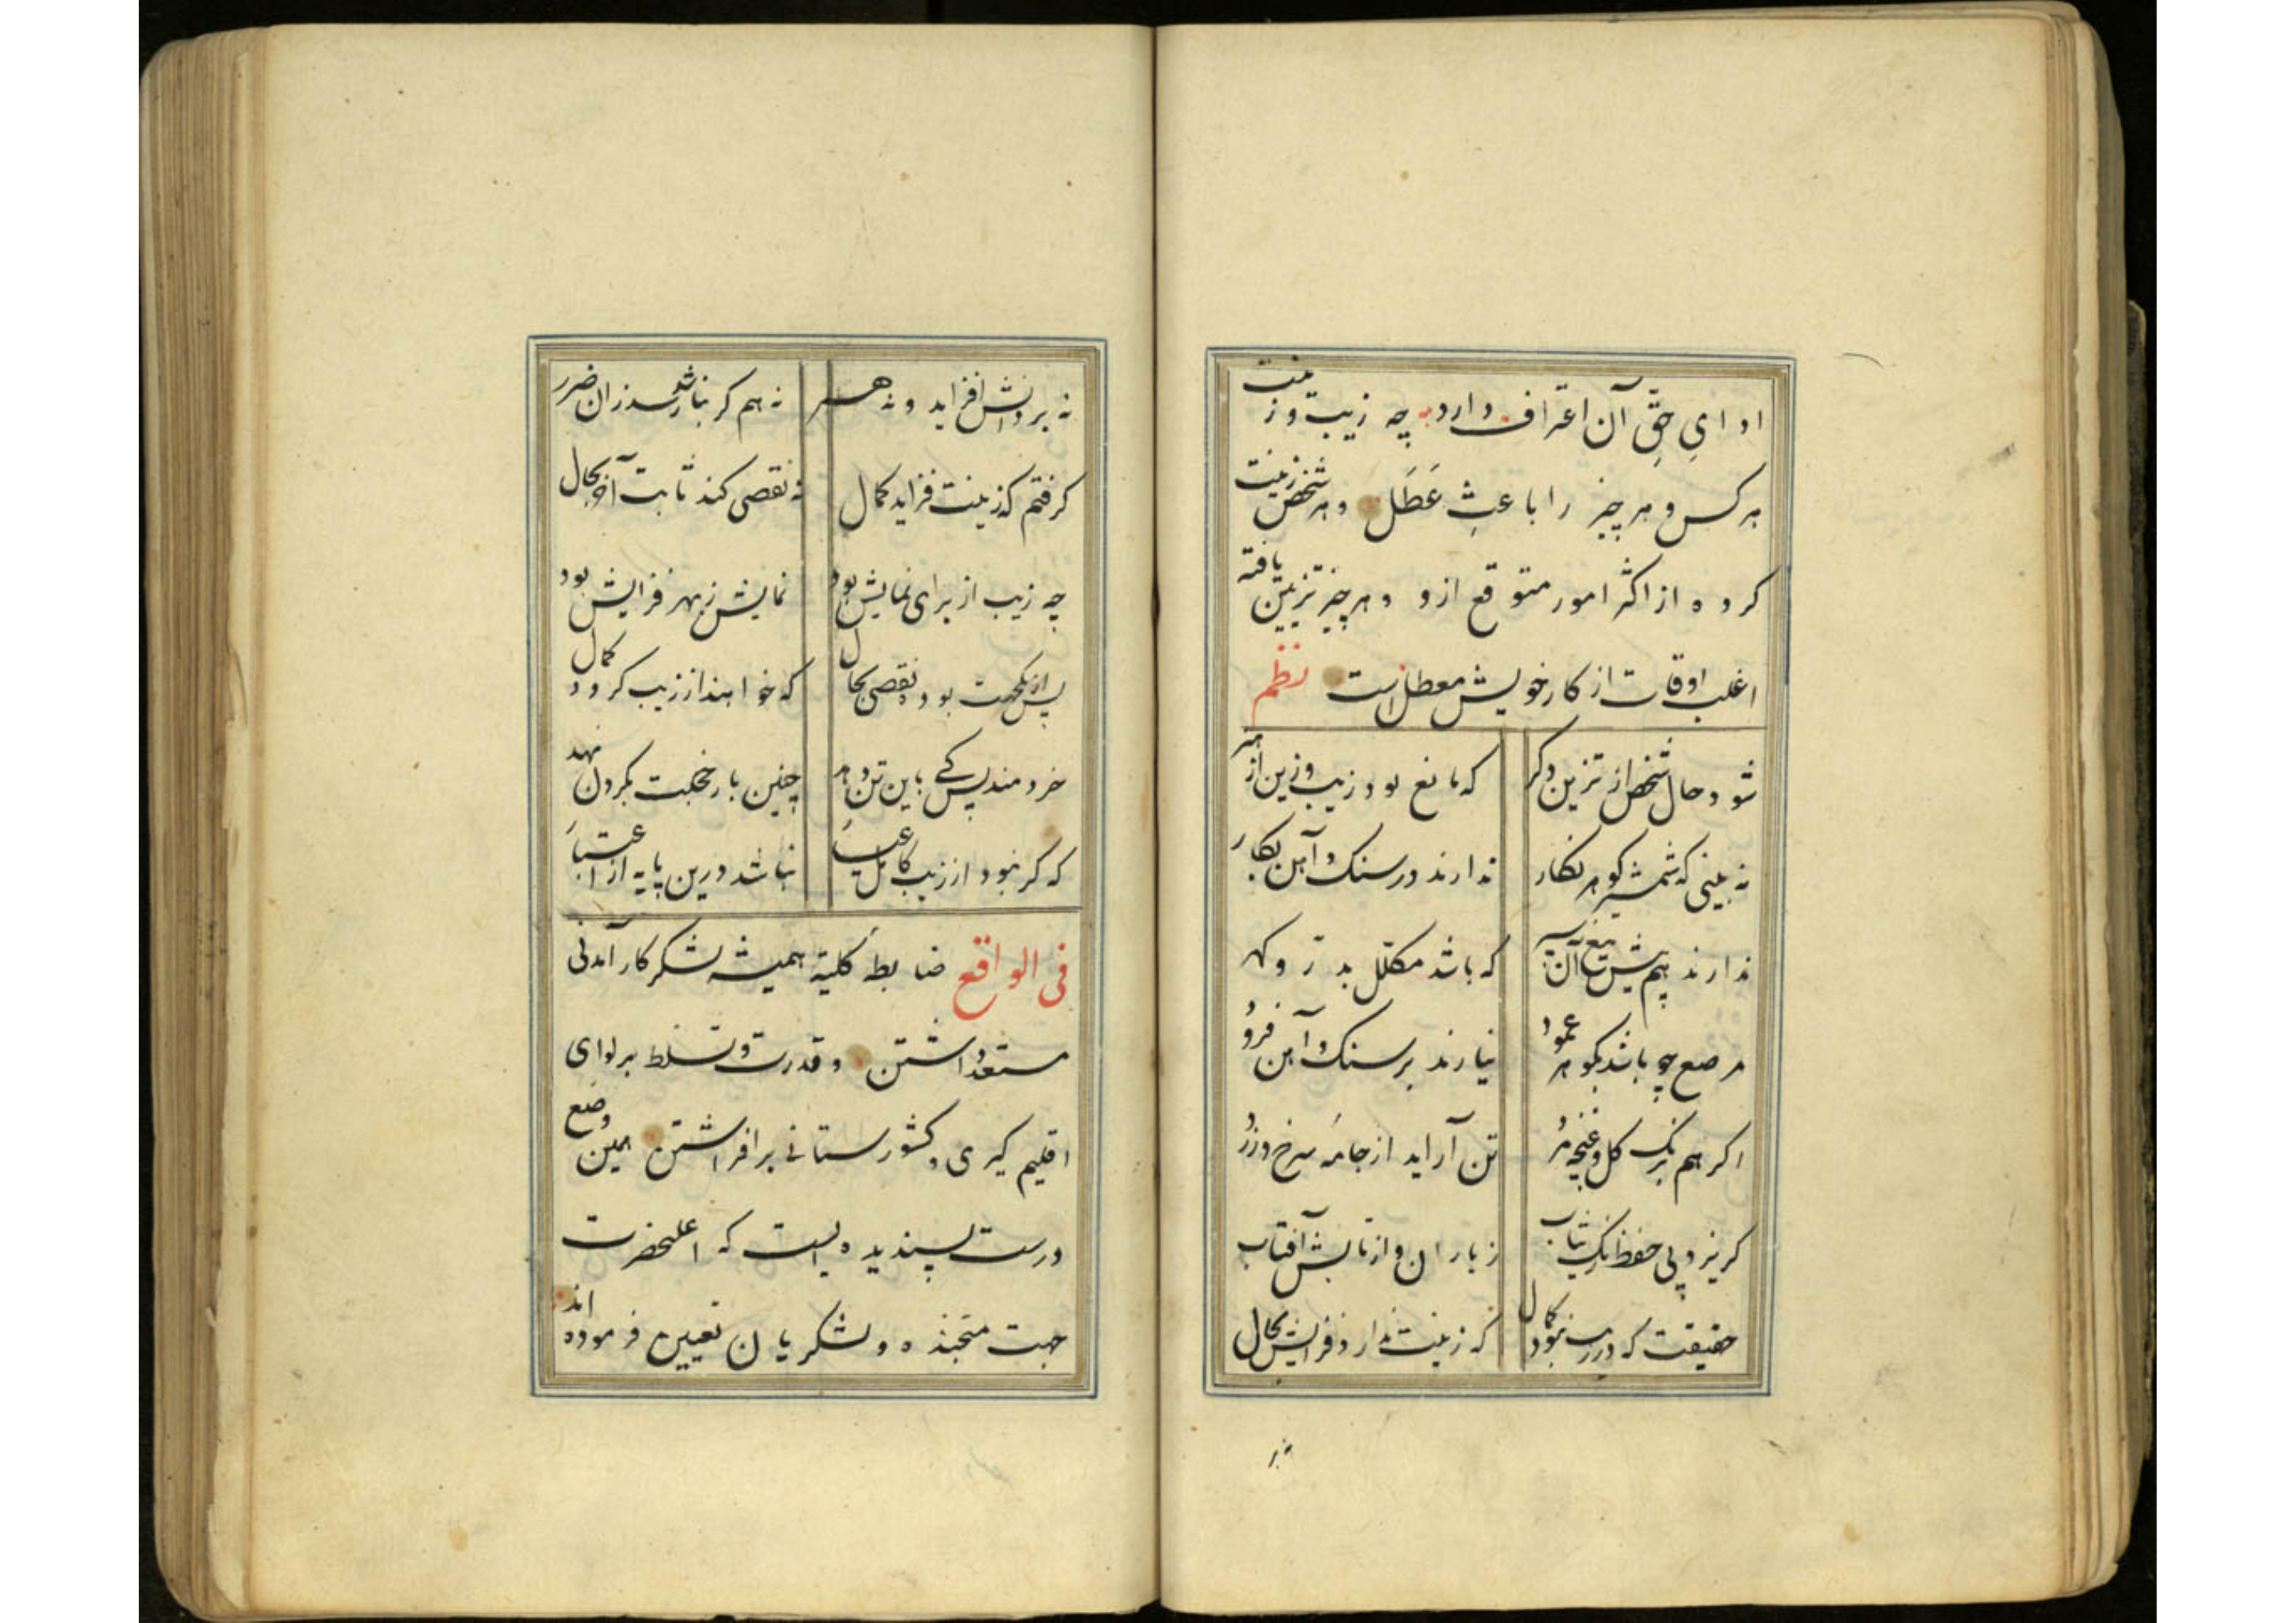 ادای حقِّ آن اعتراف دارد چه زیب و زینت
هر کس و هر چیز را باعثِ عَطَل و هر شخص زینت
کرده از اکثر امور متوقع ازو و هر چیز تزیین یافته
اغلب اوقات از کار خویش معطل است نظم
شود حال شخص از تزین دگر که مانع بود زیب و زین از هنر
نه بینی که شمشیر گوهر نگار ندارند در سنک و آهن بکار
ندارند هم پیش تیغ آن سپر که باشد مکلّل بدرّ و گهر
مرصع چو باشد بگوهر عمود نیارند بر سنک و آهن فرود
اکر هم برنک کل و غنچه مرد تن آراید از جامهٔ سرخ و زرد
گریزد پی حفظ رنک ثیاب ز باران و از تابش آفتاب
حقیقت که در مرد نبود کمال که زینت ندارد فزایش بحال
نه بر
نه بر دانش افزاید و نه هنر نه هم کر نباشد رسد زان ضرر
کرفتم که زینت فزاید کمال نه نقصی کند ثابت آخر بحال
چه زیب از برای نمایش بود نمایش ز بهر فزایش بود
پس از یکجهت بود نقصی بحال که خواهند از زیب کردد کمال
خردمند پس کے باین تن دهد چنین بار خجلت بکردن نهد
که کر نبود از زیب کامل عیار نباشد درین پایه از اعتبار
فی الواقع ضابطه کلیّه همیشه لشکر کار آمدنی
مستعد داشتن و قدرت و تسلط بر لوای
اقلیم کیری و کشورستانی برافراشتن همین وضع
درست پسندیده ایست که اعلیحضرت
جهت متجنده و لشکریان تعیین فرموده اند